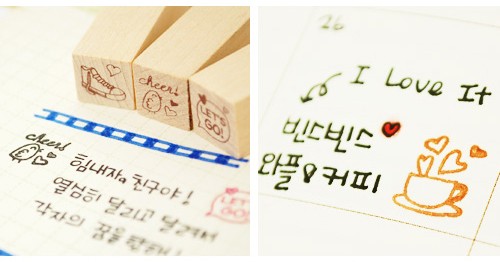 cheer!
LET'S GO!
cheer!
힘내자 친구야!
열심히 달리고 달려서
각자의 꿈을
LET'S GO!
26
I Love It
빈드빈스
와플&커피